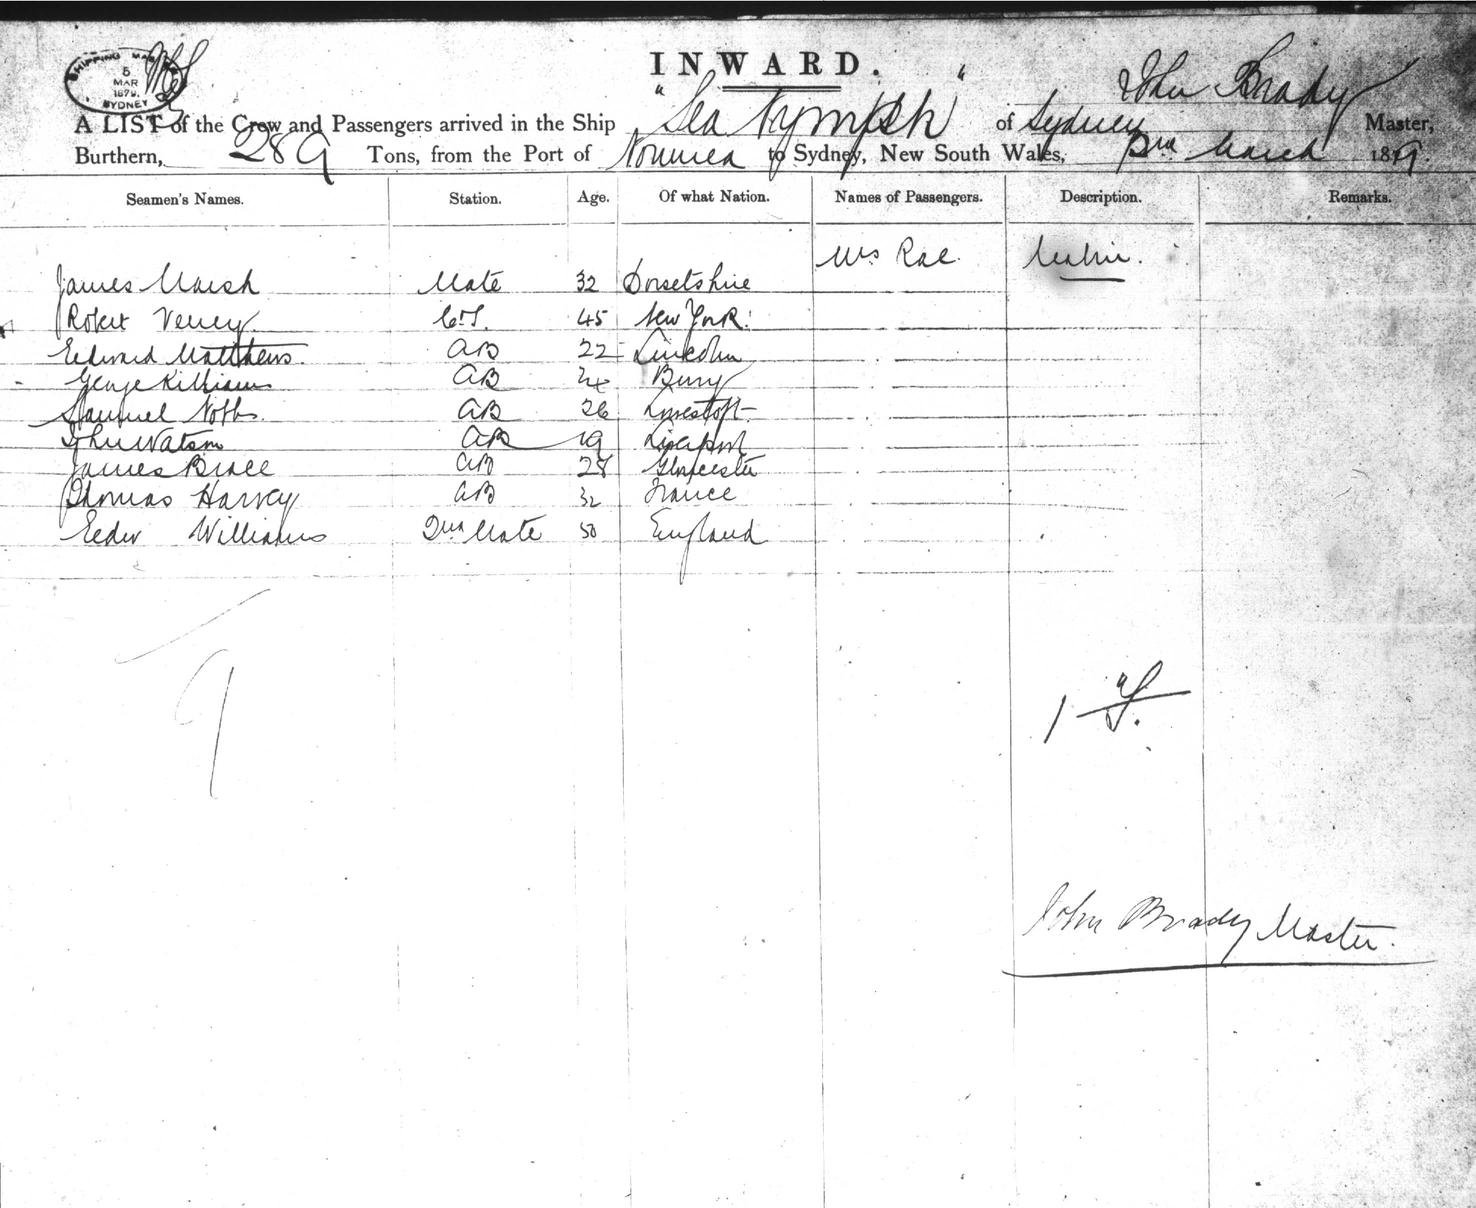 SHIPPING MASTER
5
MAR
1879.
SYDNEY
INWARD.
A LIST of the Crew and Passengers arrived in the Ship "Sea Nymph" of Sydney John Brady Master,
Burthern, 289 Tons, from the Port of Noumea to Sydney, New South Wales, March 1879
Seamen's Names. Station. Age. Of what Nation. Names of Passengers. Description. Remarks.
Mrs Rae. Cabin.
James Marsh Mate 32 Dorsetshire
Robert 45 New York.
Edward Matthews. AB 22 Lincoln
George Killiams AB 24 Bury
Samuel AB 26 Lowestoft
John Watson AB 19 Liverpool
James AB 28 Gloucester
Thomas Harvey AB 32 France
Williams 2nd Mate 50 England
9
1
John Brady Master.